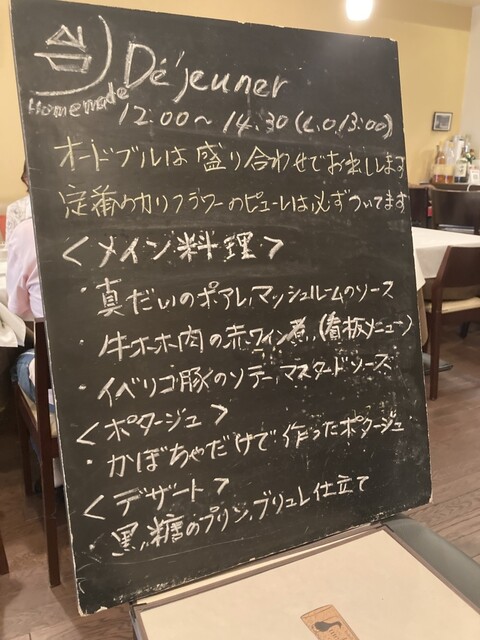 Homemade
Déjeuner
12:00～14.30(L.O 13:00)
オードブルは盛り合わせでお出しします
定番のカリフラワーのピューレは必ずついてます
<メイン料理>
・真だいのポアレ,マッシュルームのソース
・牛ホホ肉の赤ワイン煮,(看板メニュー)
・イベリコ豚のソテー,マスタードソース
<ポタージュ>
・かぼちゃだけで作ったポタージュ
<デザート>
・黒糖のプリン,ブリュレ仕立て